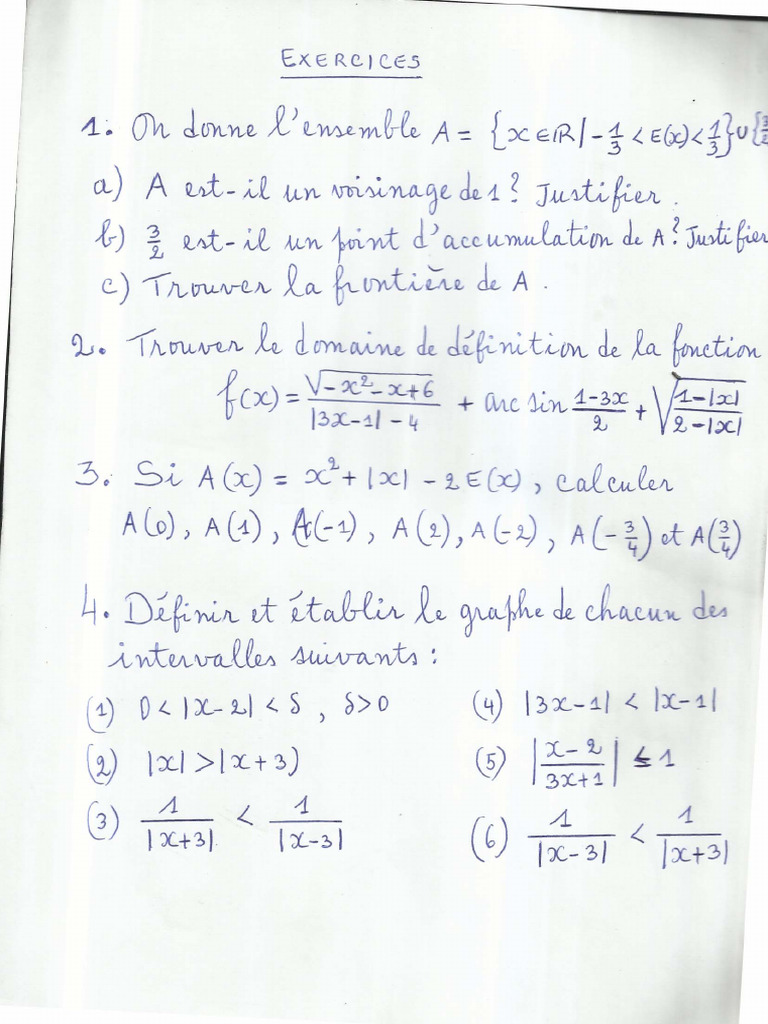 EXERCICES
1. On donne l'ensemble A = {x ∈ ℝ | -1/3 < E(x) < 1/3} ∪ {3/2
a) A est-il un voisinage de 1? Justifier.
b) 3/2 est-il un point d'accumulation de A? Justifier
c) Trouver la frontière de A.
2. Trouver le domaine de définition de la fonction
f(x) = √(-x²-x+6) / (|3x-1| - 4) + arc sin (1-3x)/2 + √((1-|x|)/(2-|x|))
3. Si A(x) = x² + |x| - 2E(x), calculer
A(0), A(1), A(-1), A(2), A(-2), A(-3/4) et A(3/4)
4. Définir et établir le graphe de chacun des
intervalles suivants :
(1) 0 < |x-2| < δ, δ>0
(2) |x| > |x+3)
(3) 1/|x+3| < 1/|x-3|
(4) |3x-1| < |x-1|
(5) |(x-2)/(3x+1)| ≤ 1
(6) 1/|x-3| < 1/|x+3|